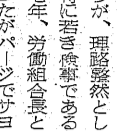 が、理路整然とし
に若き検事である
年、労働組合長と
たがパージでサヨ